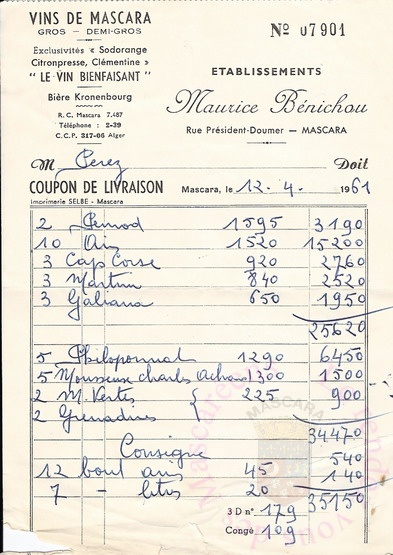 VINS DE MASCARA
GROS – DEMI-GROS
Exclusivités « Sodorange
Citronpresse, Clémentine »
" LE VIN BIENFAISANT "
Bière Kronenbourg
R. C. Mascara 7.487
Téléphone : 2-39
C. C. P. 317-66 Alger
Nº 07901
ETABLISSEMENTS
Maurice Bénichou
Rue Président-Doumer — MASCARA
M Perez Doit
COUPON DE LIVRAISON Mascara, le 12. 4. 1961
Imprimerie SELBE - Mascara
2 Pernod 1595 3190
10 Anis 1520 15200
3 Cap Corse 920 2760
3 Martini 840 2520
3 Galiana 650 1950
25620
5 Philipponnat 1290 6450
5 Mousseux Charles 300 1500
2 M. Vertes { 225 900
2 Grenadines
34470
Consigne 540
12 bout anis 45 140
7 - litres 20 35150
3 D nº 179
Congé 109
MASCARA